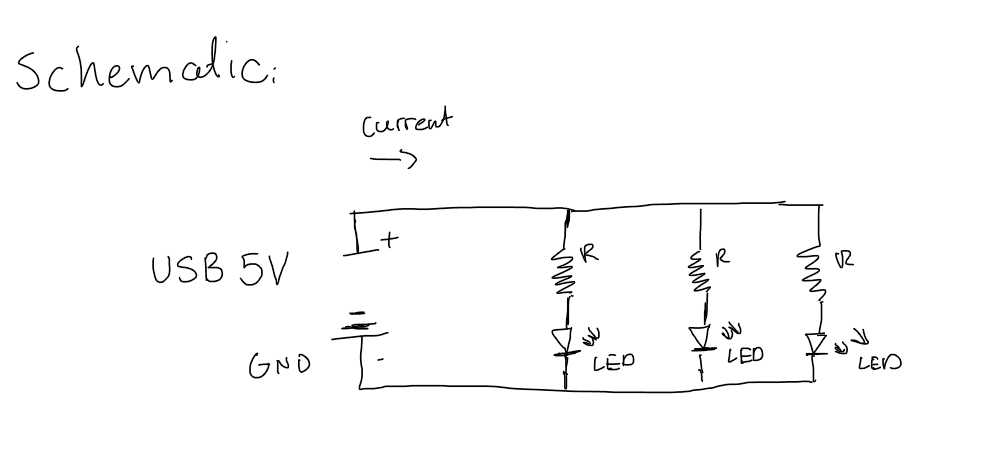 Schematic:
Current
→
+
USB 5V
R
R
R
GND
-
LED
LED
LED